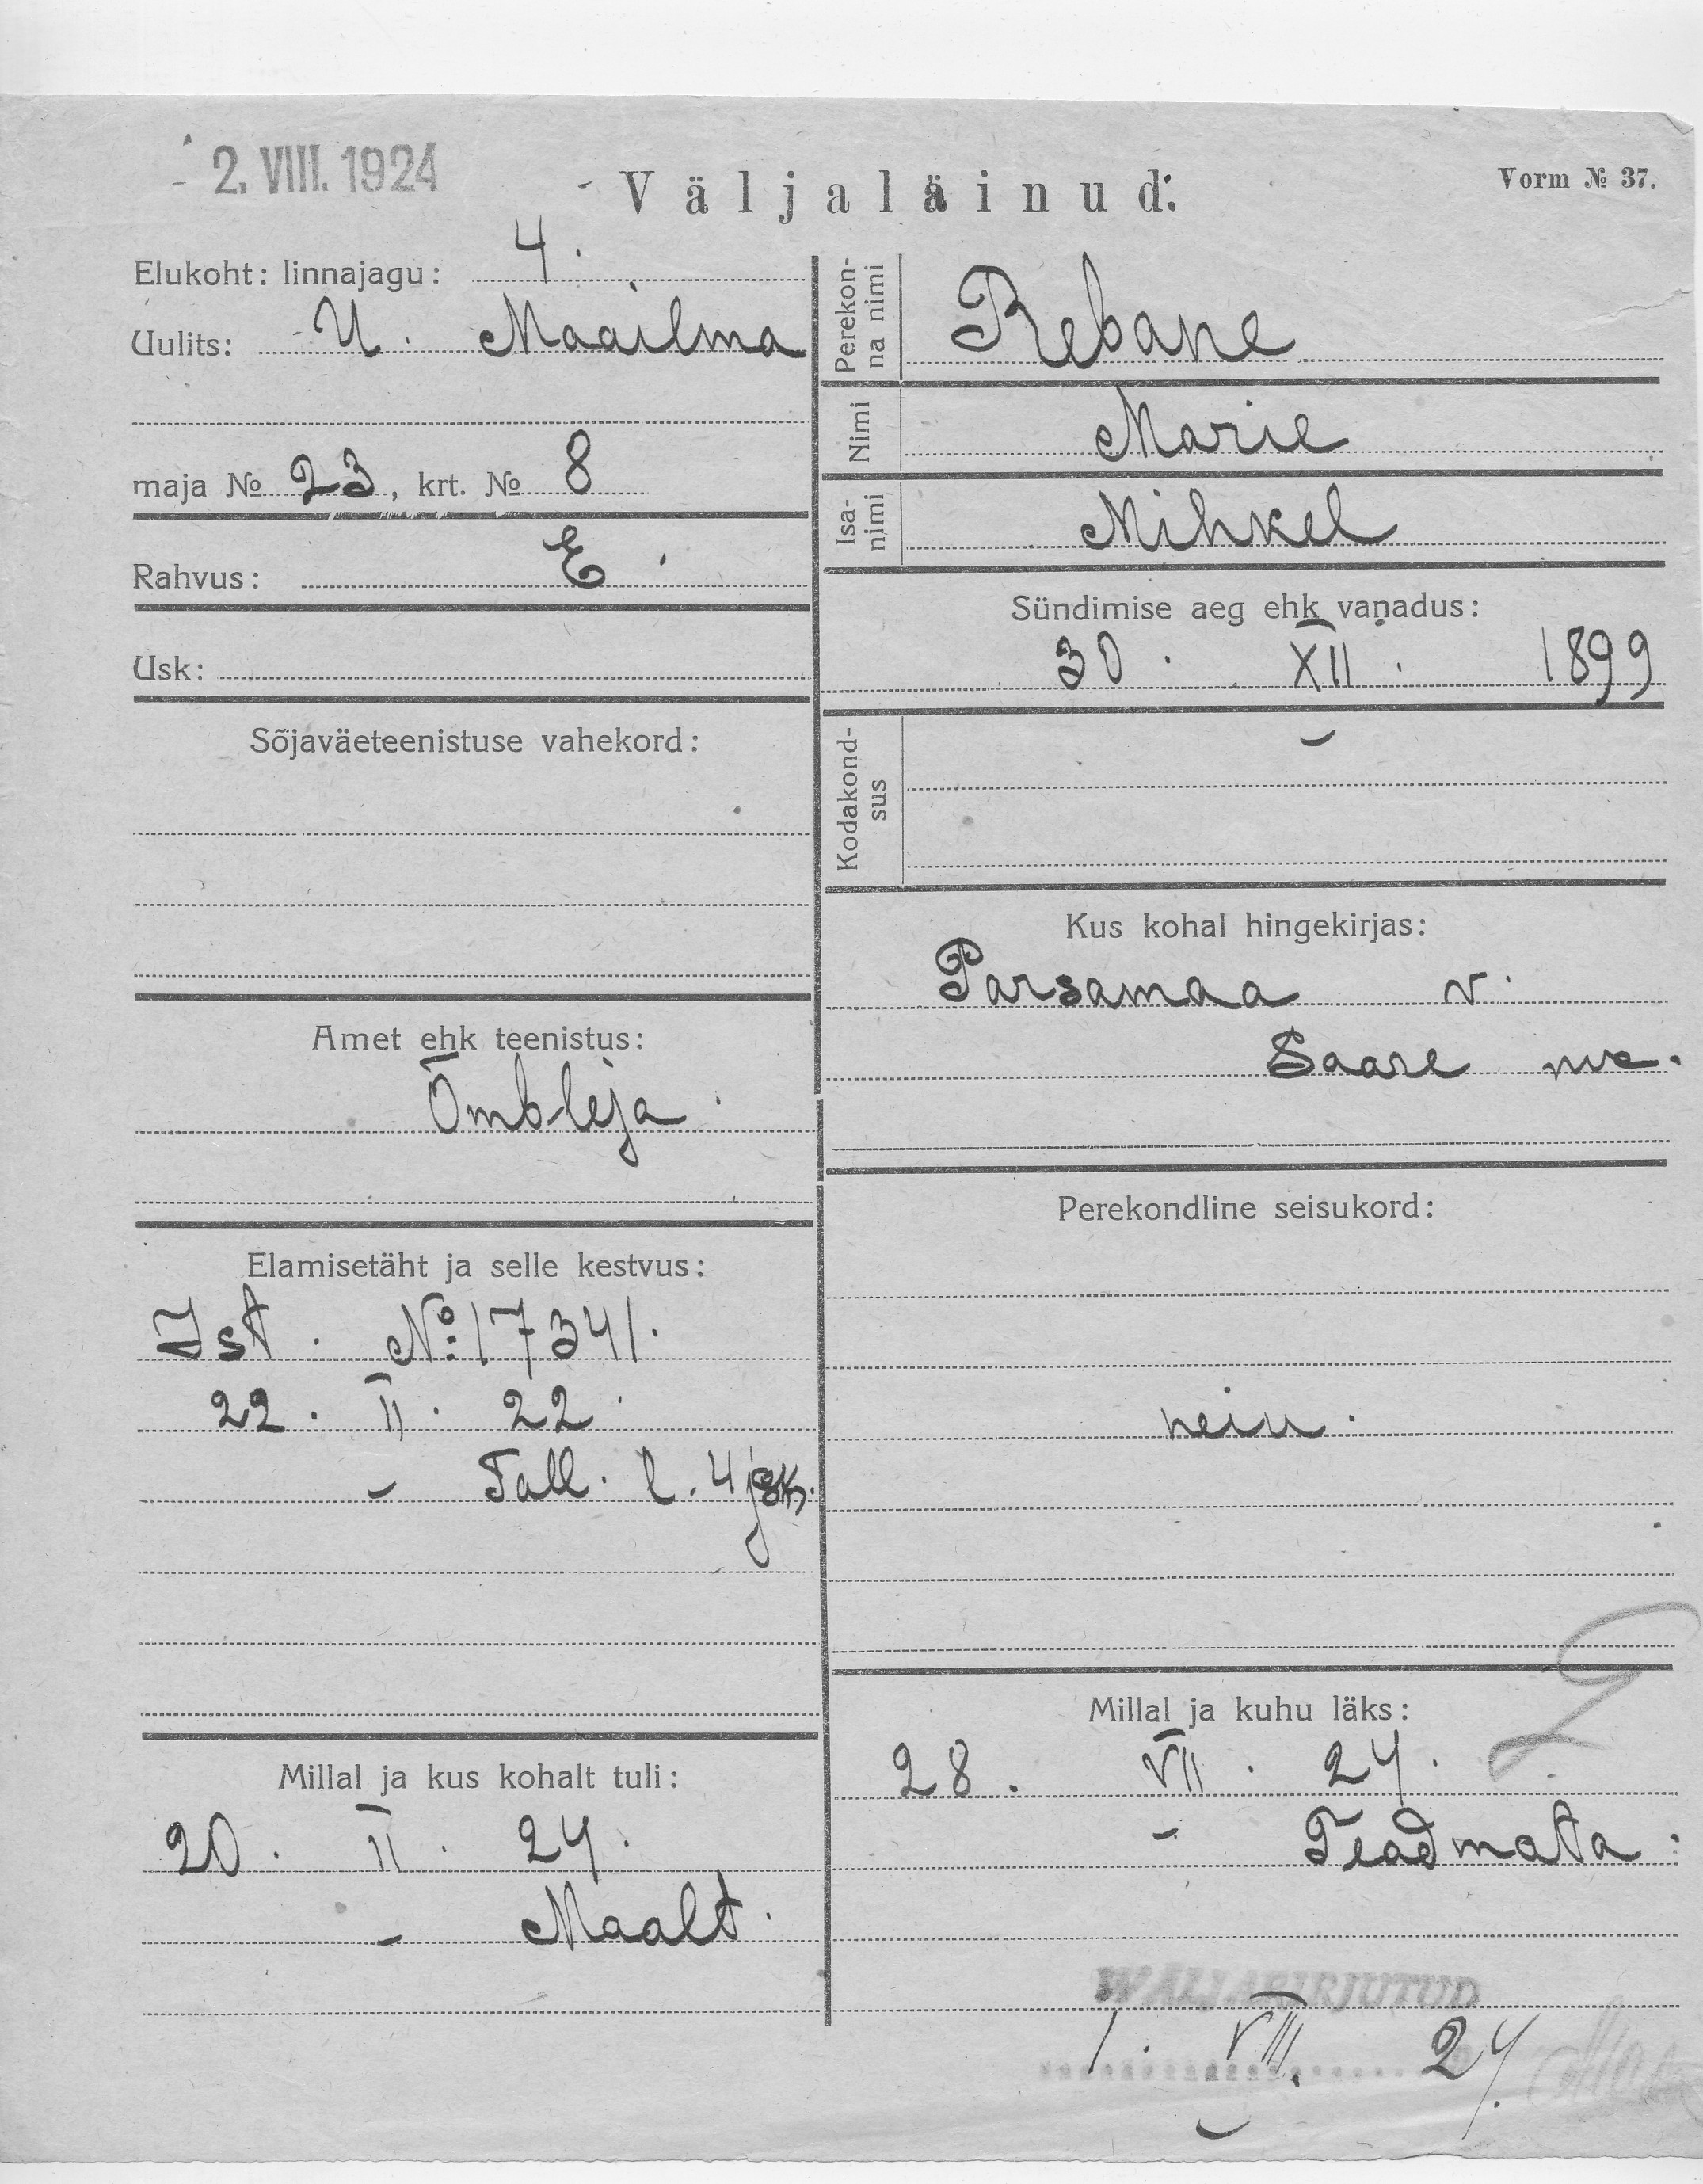 2. VIII. 1924
Väljaläinud.
Vorm № 37.
Elukoht: linnajagu: 4.
Uulits: U. Maailma
maja № 23, krt. № 8
Rahvus: E.
Usk:
Sõjaväeteenistuse vahekord:
Amet ehk teenistus:
Õmbleja.
Elamisetäht ja selle kestvus:
Ist. №: 17341.
22. II. 22.
- Tall. l. 4 jsk.
Millal ja kus kohalt tuli:
20. II. 24.
- Maalt.
Perekon-
na nimi
Rebane
Nimi
Marie
Isa-
nimi
Mihkel
Sündimise aeg ehk vanadus:
30. XII. 1899
Kodakond-
sus
Kus kohal hingekirjas:
Parsamaa v.
Saare
Perekondline seisukord:
neiu.
Millal ja kuhu läks:
28. VII. 24.
- Teadmata.
WÄLJAKIRJUTUD
1. VIII. 24.